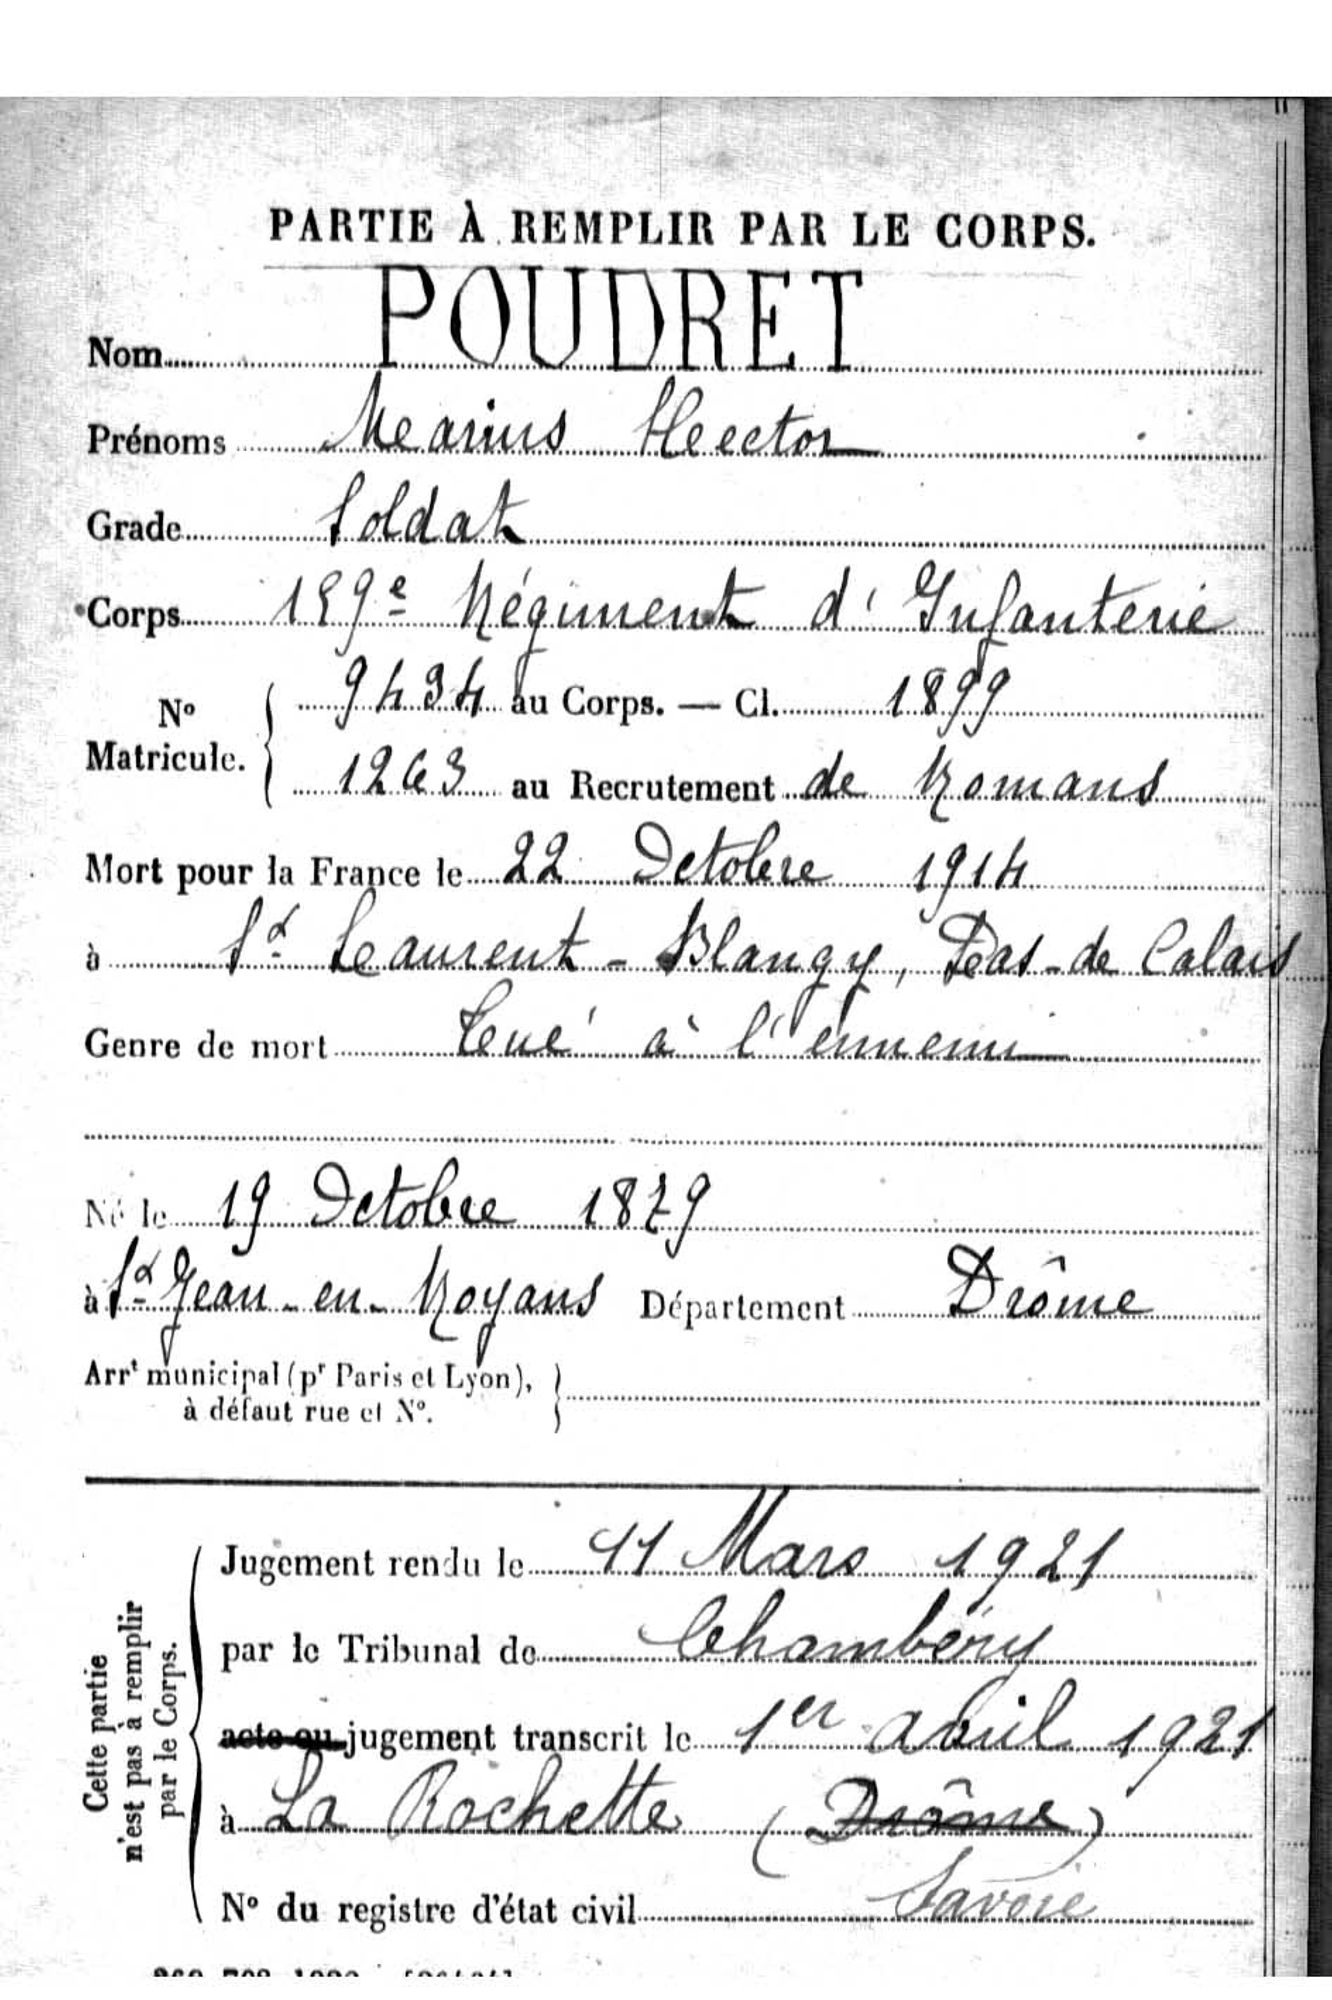 PARTIE À REMPLIR PAR LE CORPS.
Nom POUDRET
Prénoms Marius Hector
Grade Soldat
Corps 159e Régiment d'Infanterie
No Matricule. { 9434 au Corps. — Cl. 1899
1263 au Recrutement de Romans
Mort pour la France le 22 Octobre 1914
à St Laurent-Blangy, Pas-de Calais
Genre de mort Tué à l'ennemi
Né le 19 Octobre 1879
à St Jean-en-Royans Département Drôme
Arrt municipal (pr Paris et Lyon),
à défaut rue et No.
Cette partie
n'est pas à remplir
par le Corps.
Jugement rendu le 11 Mars 1921
par le Tribunal de Chambéry
acte ou jugement transcrit le 1er avril 1921
à La Rochette (Drôme)
Savoie
No du registre d'état civil